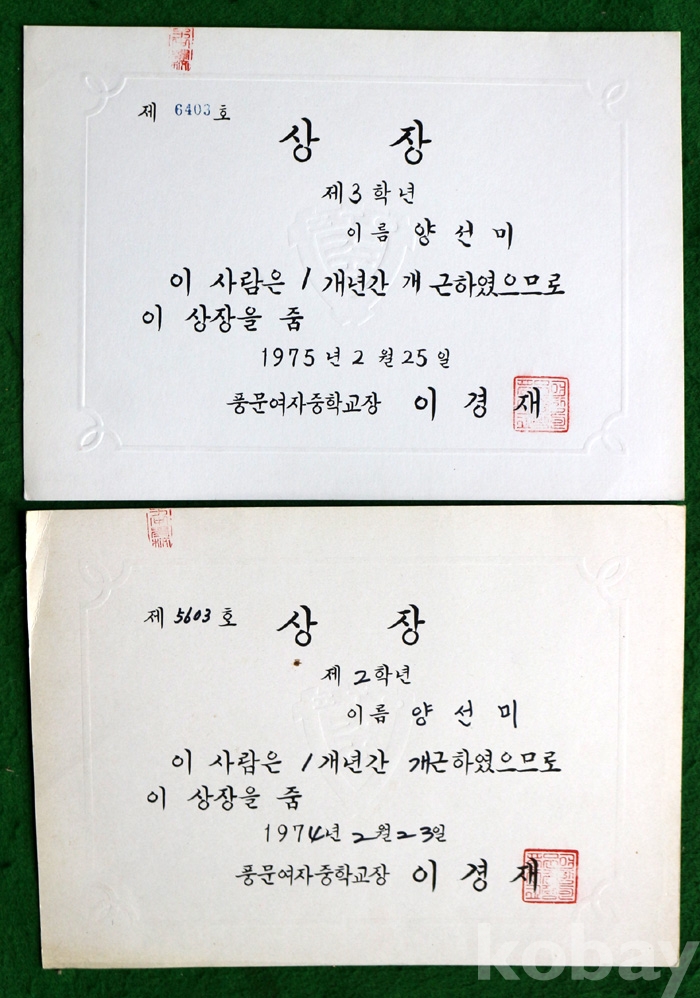 제 6403 호
상 장
제 3 학년
이름 양 선 미
이 사람은 1 개년간 개 근하였으므로
이 상장을 줌
1975 년 2 월 25 일
풍문여자중학교장 이 경 재
제 5603 호
상 장
제 2 학년
이름 양 선 미
이 사람은 1 개년간 개근하였으므로
이 상장을 줌
1974년 2월 23일
풍문여자중학교장 이 경 재
kobay